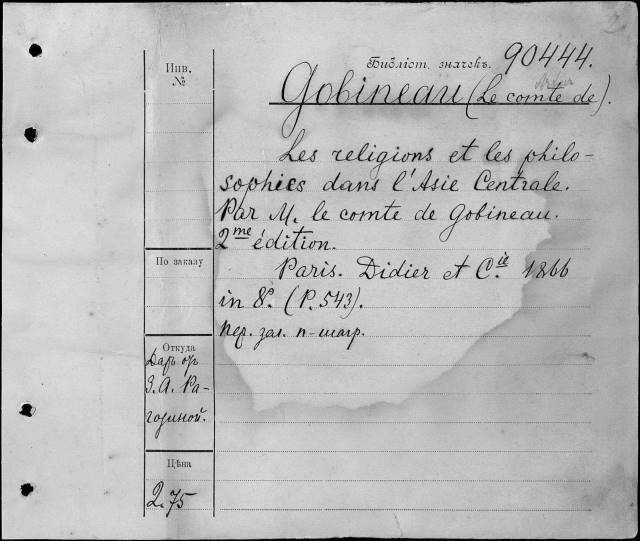 2
Библіот. значекъ. 90444.
Инв.
№
Gobineau (Le comte de).
Les religions et les philo-
sophies dans l'Asie Centrale.
Par M. le comte de Gobineau.
2me édition.
Paris. Didier et Cie 1866
in 8º. (P. 543).
пер. зал. п-шагр.
По заказу
Откуда
Даръ отъ
З. А. Ра-
гозиной.
Цѣна
2.75